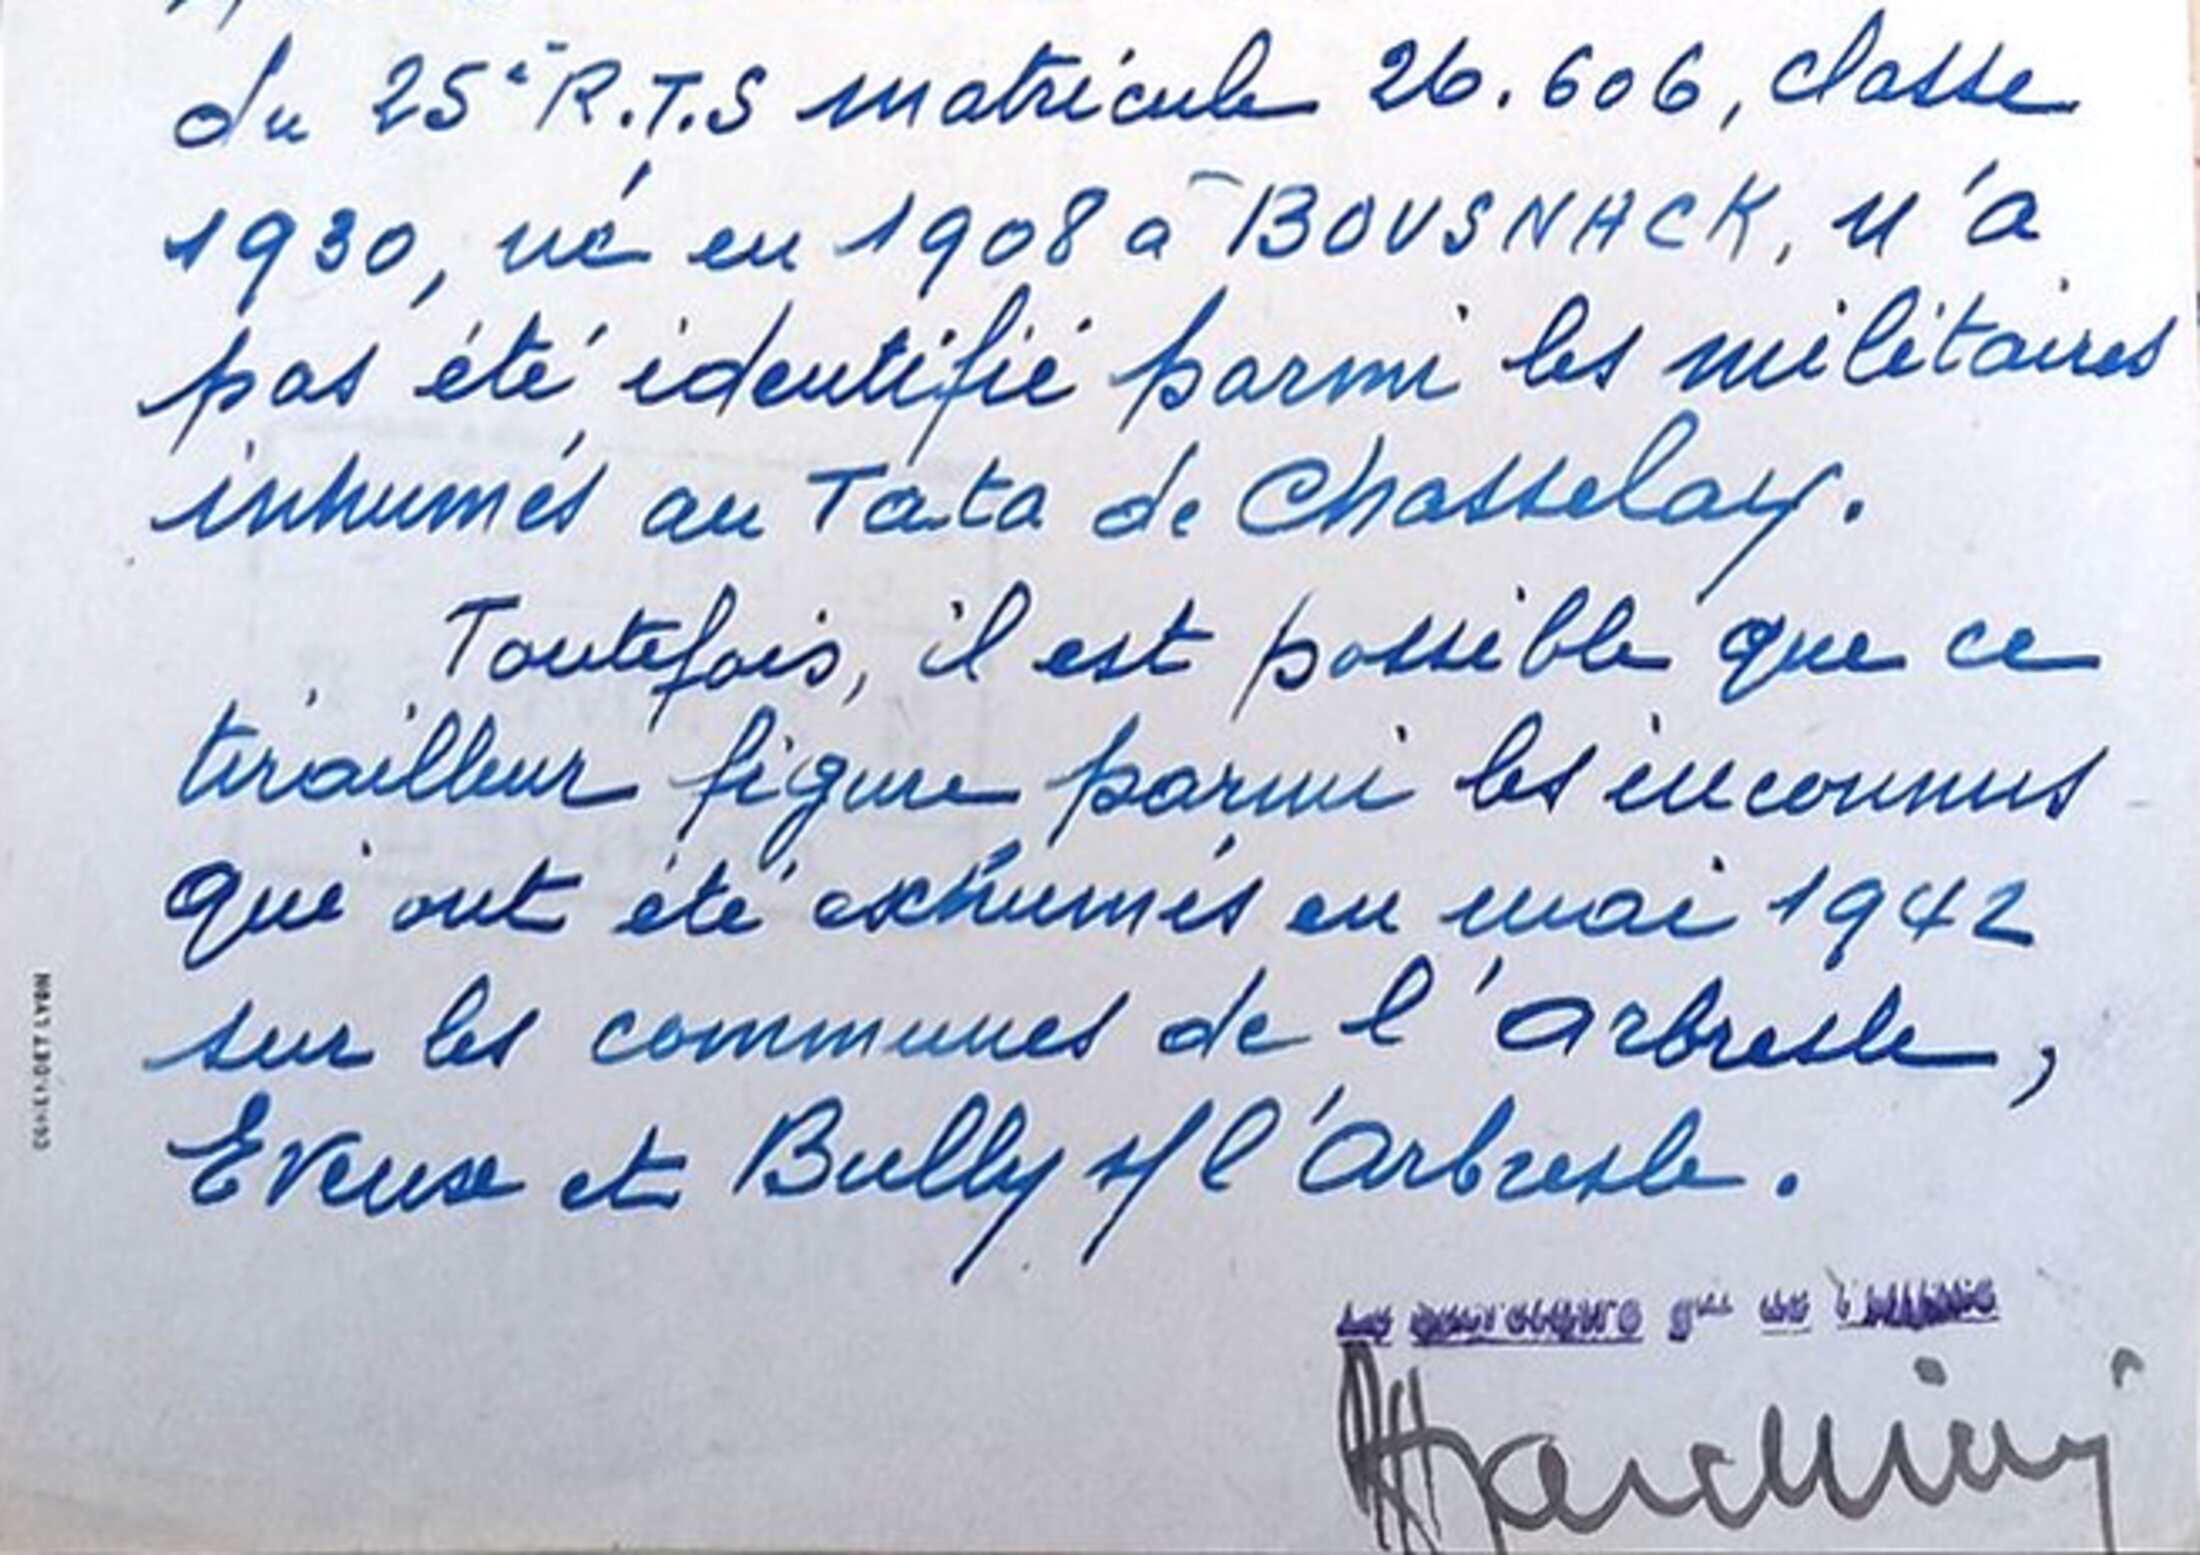 du 25e R.T.S matricule 26.606, classe
1930, né en 1908 à BOUSNACK, n'a
pas été identifié parmi les militaires
inhumés au Tata de Chasselay.
Toutefois, il est possible que ce
tirailleur figure parmi les inconnus
qui ont été exhumés en mai 1942
sur les communes de l'Arbresle,
Eveuse et Bully s/l'Arbresle.